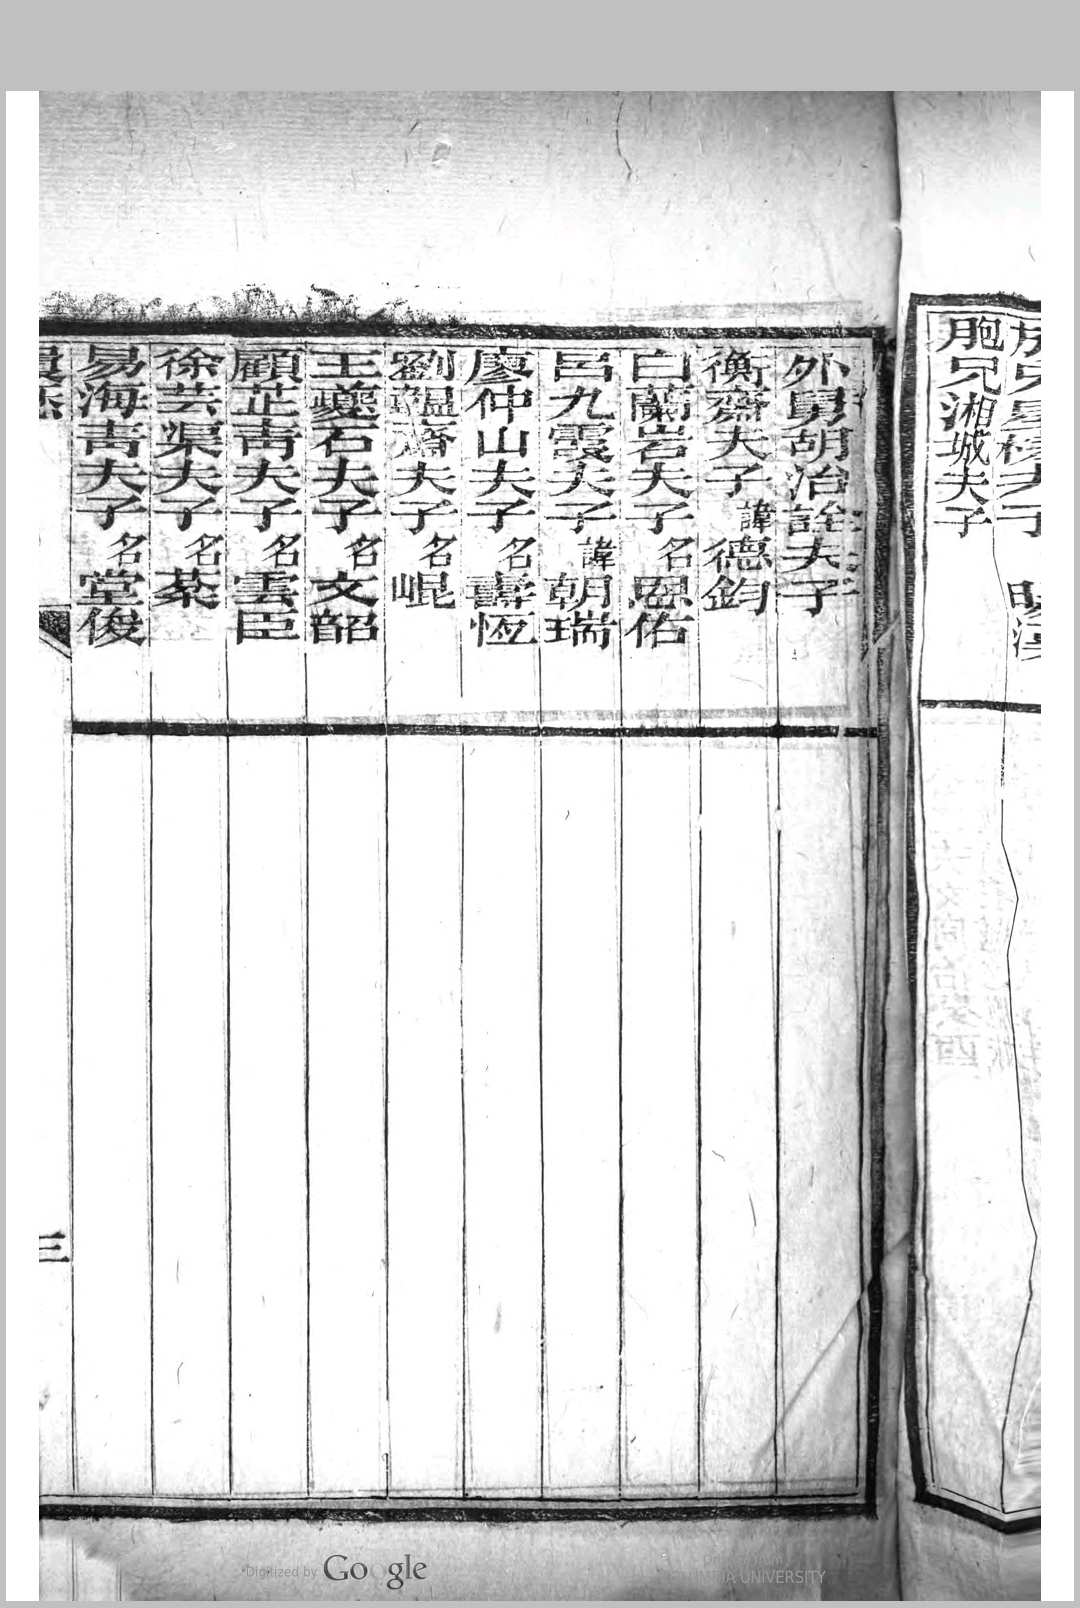 胞兄湘城夫子
外舅胡治詮夫子
衡齋夫子諱德鈞
白蘭岩夫子名恩佑
呂九霞夫子諱朝瑞
廖仲山夫子名壽恆
劉韞齋夫子名崐
王夔石夫子名文韶
顧芷靑夫子名雲臣
徐芸渠夫子名棻
易海靑夫子名堂俊
三
Digitized by Google
UNIVERSITY